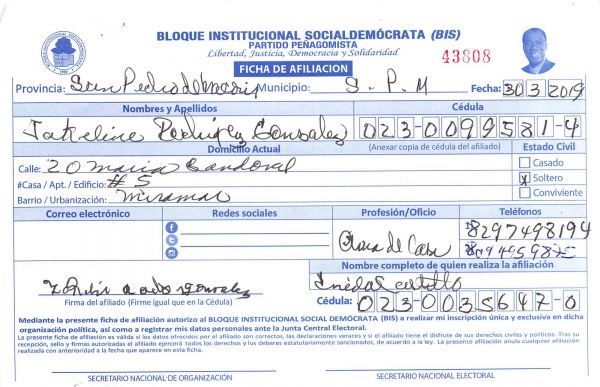 BLOQUE INSTITUCIONAL SOCIALDEMÓCRATA (BIS)
PARTIDO PEÑAGOMISTA
Libertad, Justicia, Democracia y Solidaridad
43808
FICHA DE AFILIACION
Provincia: San Pedro de Macoris Municipio: S. P. M Fecha: 30 3 2019
Nombres y Apellidos Cédula
Jakeline Rodriguez Gonzalez 023-0099581-4
Domicilio Actual (Anexar copia de cédula del afiliado) Estado Civil
Calle: 20 Maria Sandoval Casado
#Casa / Apt. / Edificio: # 5 x Soltero
Barrio / Urbanización: Miramar Conviviente
Correo electrónico Redes sociales Profesión/Oficio Teléfonos
Ama de Casa 8297498194
Nombre completo de quien realiza la afiliación
Castillo
Firma del afiliado (Firme igual que en la Cédula) Cédula: 023-0035647-0
Mediante la presente ficha de afiliación autorizo al BLOQUE INSTITUCIONAL SOCIAL DEMÓCRATA (BIS) a realizar mi inscripción única y exclusiva en dicha
organización política, así como a registrar mis datos personales ante la Junta Central Electoral.
La presente ficha de afiliación es válida si los datos ofrecidos por el afiliado son correctos, las declaraciones veraces y si el afiliado tiene el disfrute de sus derechos civiles y políticos. Tras su
recepción, sello y firmas autorizadas el afiliado ejercerá todos los derechos y los deberes estatutariamente sancionados, de acuerdo a la ley. La presente afiliación anula cualquier afiliación
realizada con anterioridad a la fecha que aparece en esta ficha.
SECRETARIO NACIONAL DE ORGANIZACIÓN SECRETARIO NACIONAL ELECTORAL